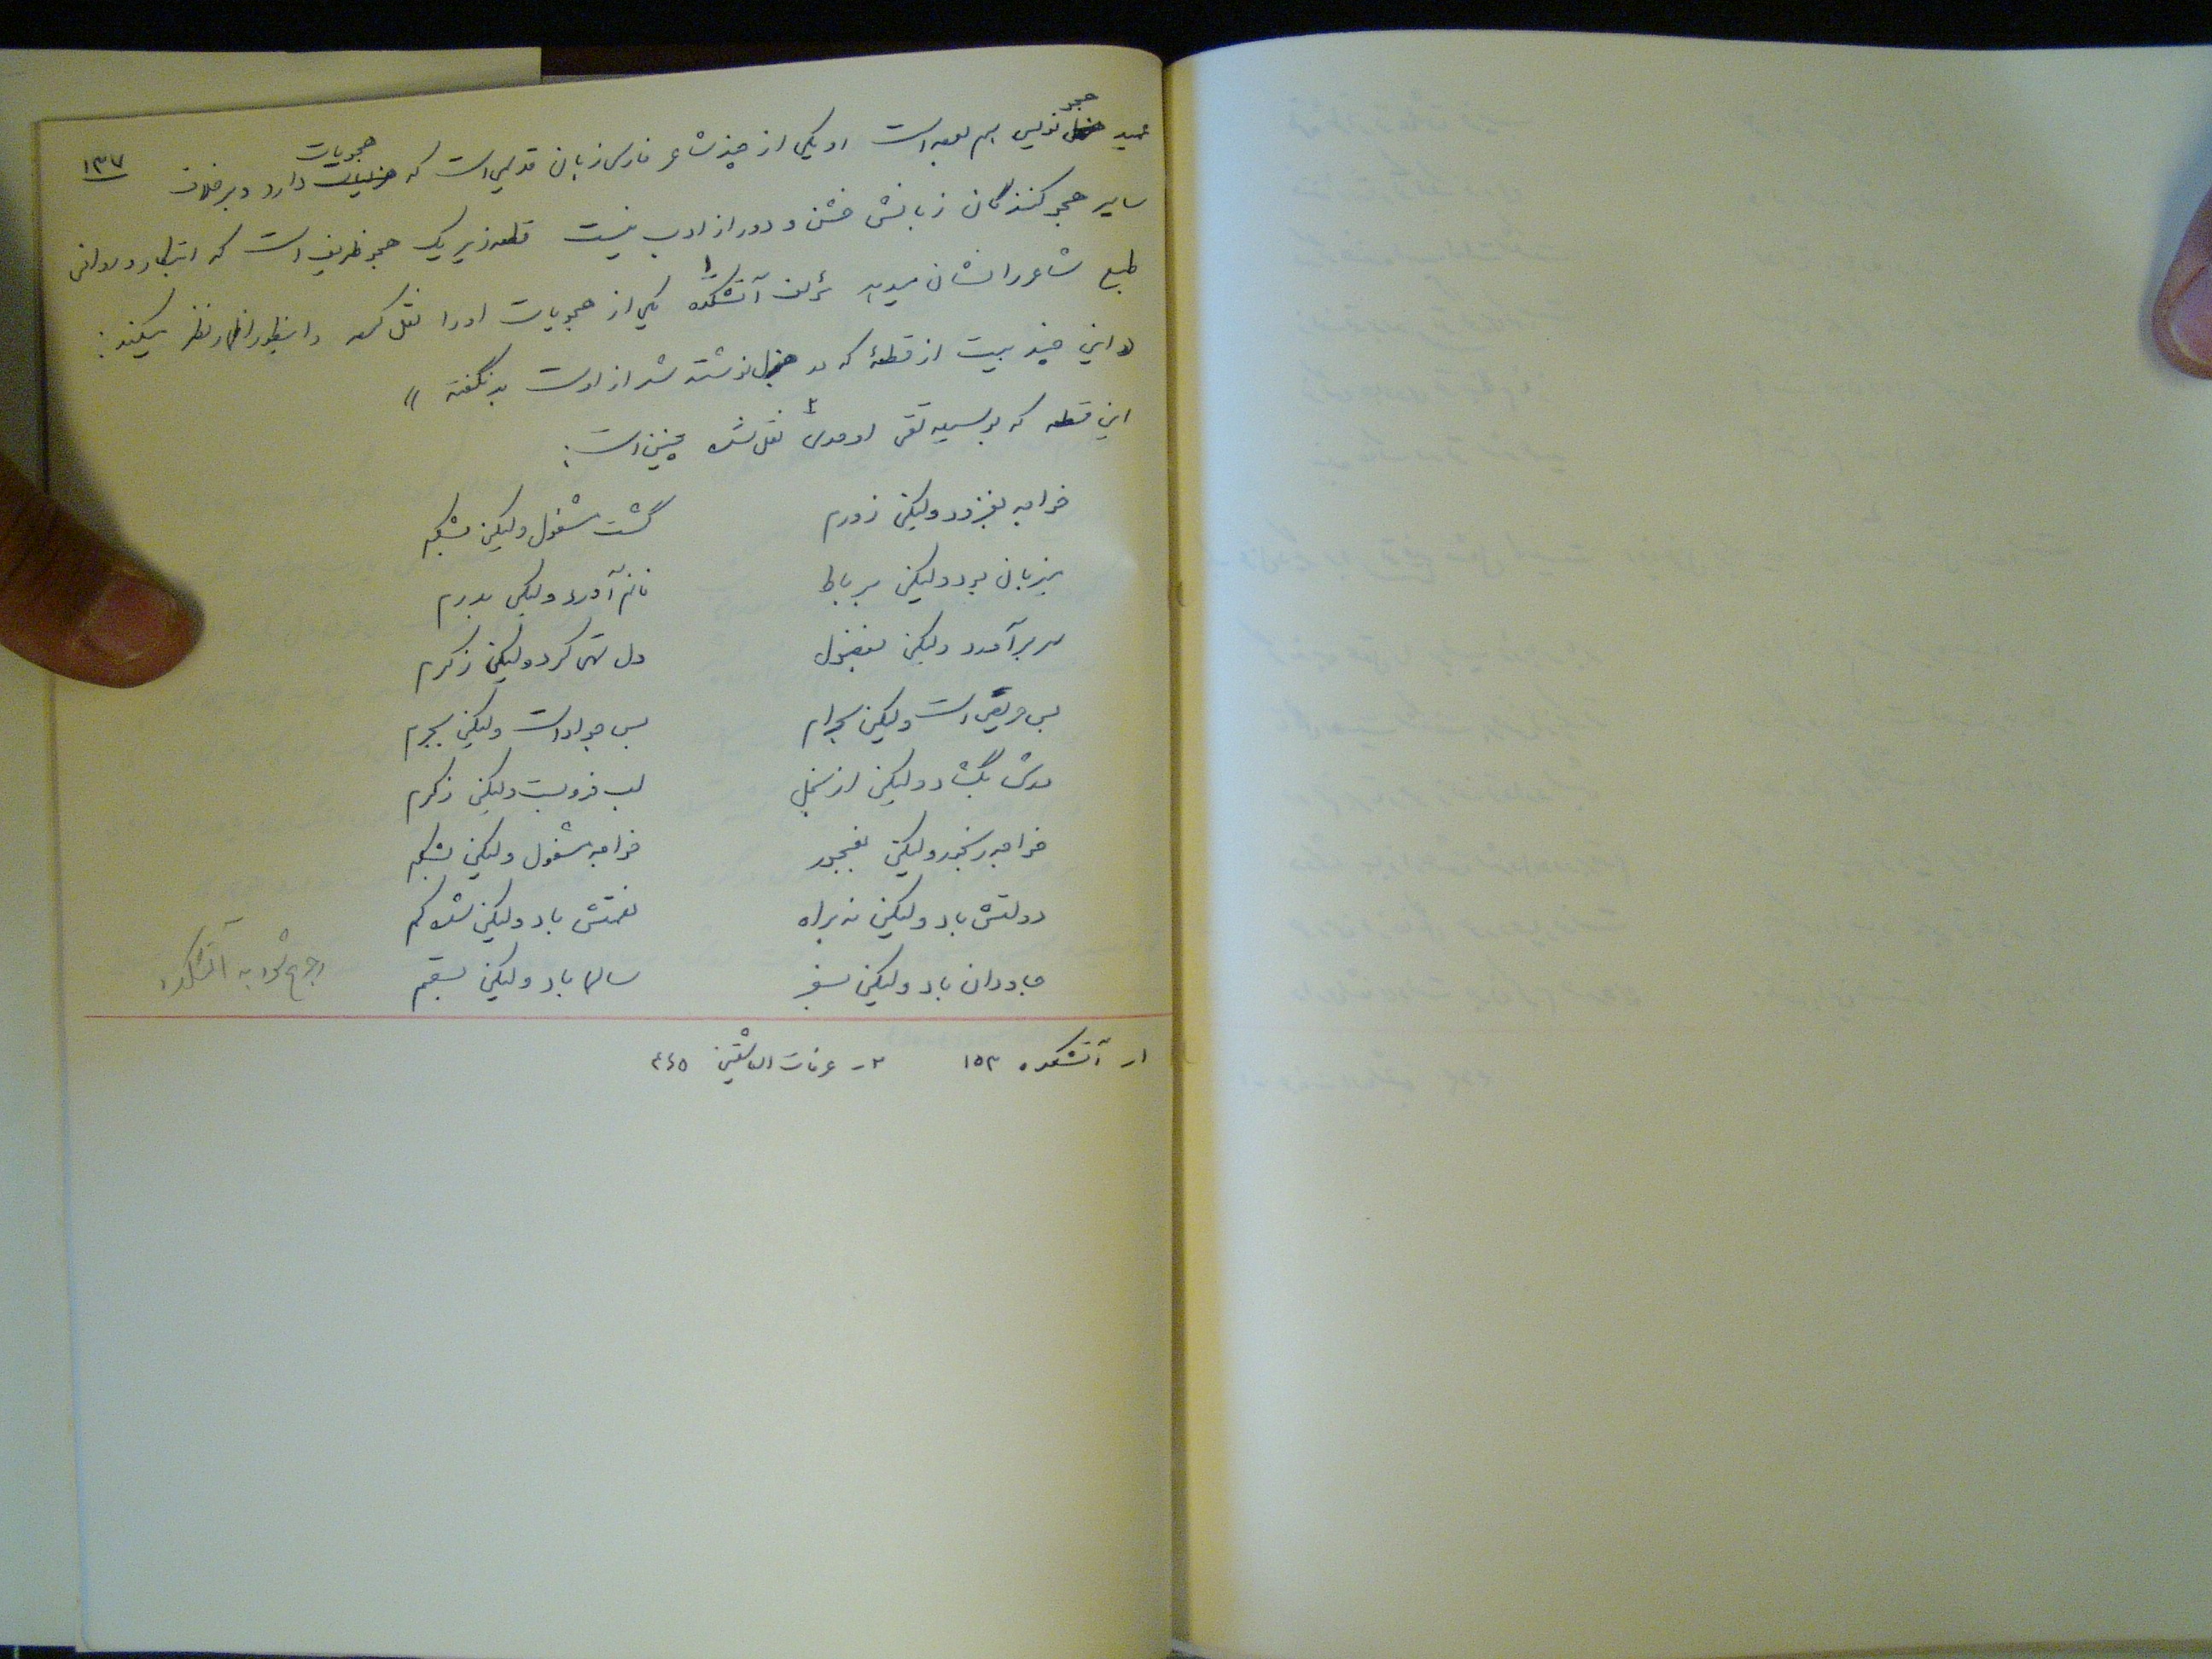 ۱۳۷
هجو
عمید نویس هم بوده است او یکی از چند شاعر فارسی زبان قدیمی است که هجویات دارد و برخلاف
سایر هجو کنندگان زبانش خشن و دور از ادب نیست قطعه زیر یک هجو ظریف است که ابتکار و روانی
طبع شاعر را نشان میدهد مؤلف آتشکده ۱ یکی از هجویات او را نقل کرده و اینطور اظهار نظر میکند:
«این چند بیت از قطعهٔ که در هزل نوشته شد از اوست بد نگفته»
این قطعه که بوسیله تقی اوحدی ۲ نقل شده چنین است:
خواجه بفزود ولیکن ز ورم گشت مشغول ولیکن بشکم
میزبان بود ولیکن برباط نانم آورد ولیکن بدرم
سر برآورد ولیکن بفضول دل تهی کرد ولیکن ز کرم
بس حریص است ولیکن بحرام بس جواد است ولیکن بجرم
لب فروبست ولیکن ز کرم
خواجه رنجور ولیکن بفجور خواجه مشغول ولیکن بشکم
دولتش باد ولیکن نه براه نعمتش باد ولیکن شده کم
جاودان باد ولیکن بسفر سالها باد ولیکن بسقم
رجوع شود به آتشکده
۱ـ آتشکده ۱۵۳ ۲ـ عرفات العاشقین ۴۶۵